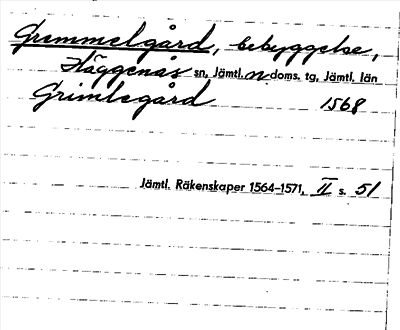 Gremmelgård, bebyggelse,
Häggenås sn, Jämtl. n doms. tg, Jämtl. län
Grimlegård 1568
Jämtl. Räkenskaper 1564–1571, II s. 51